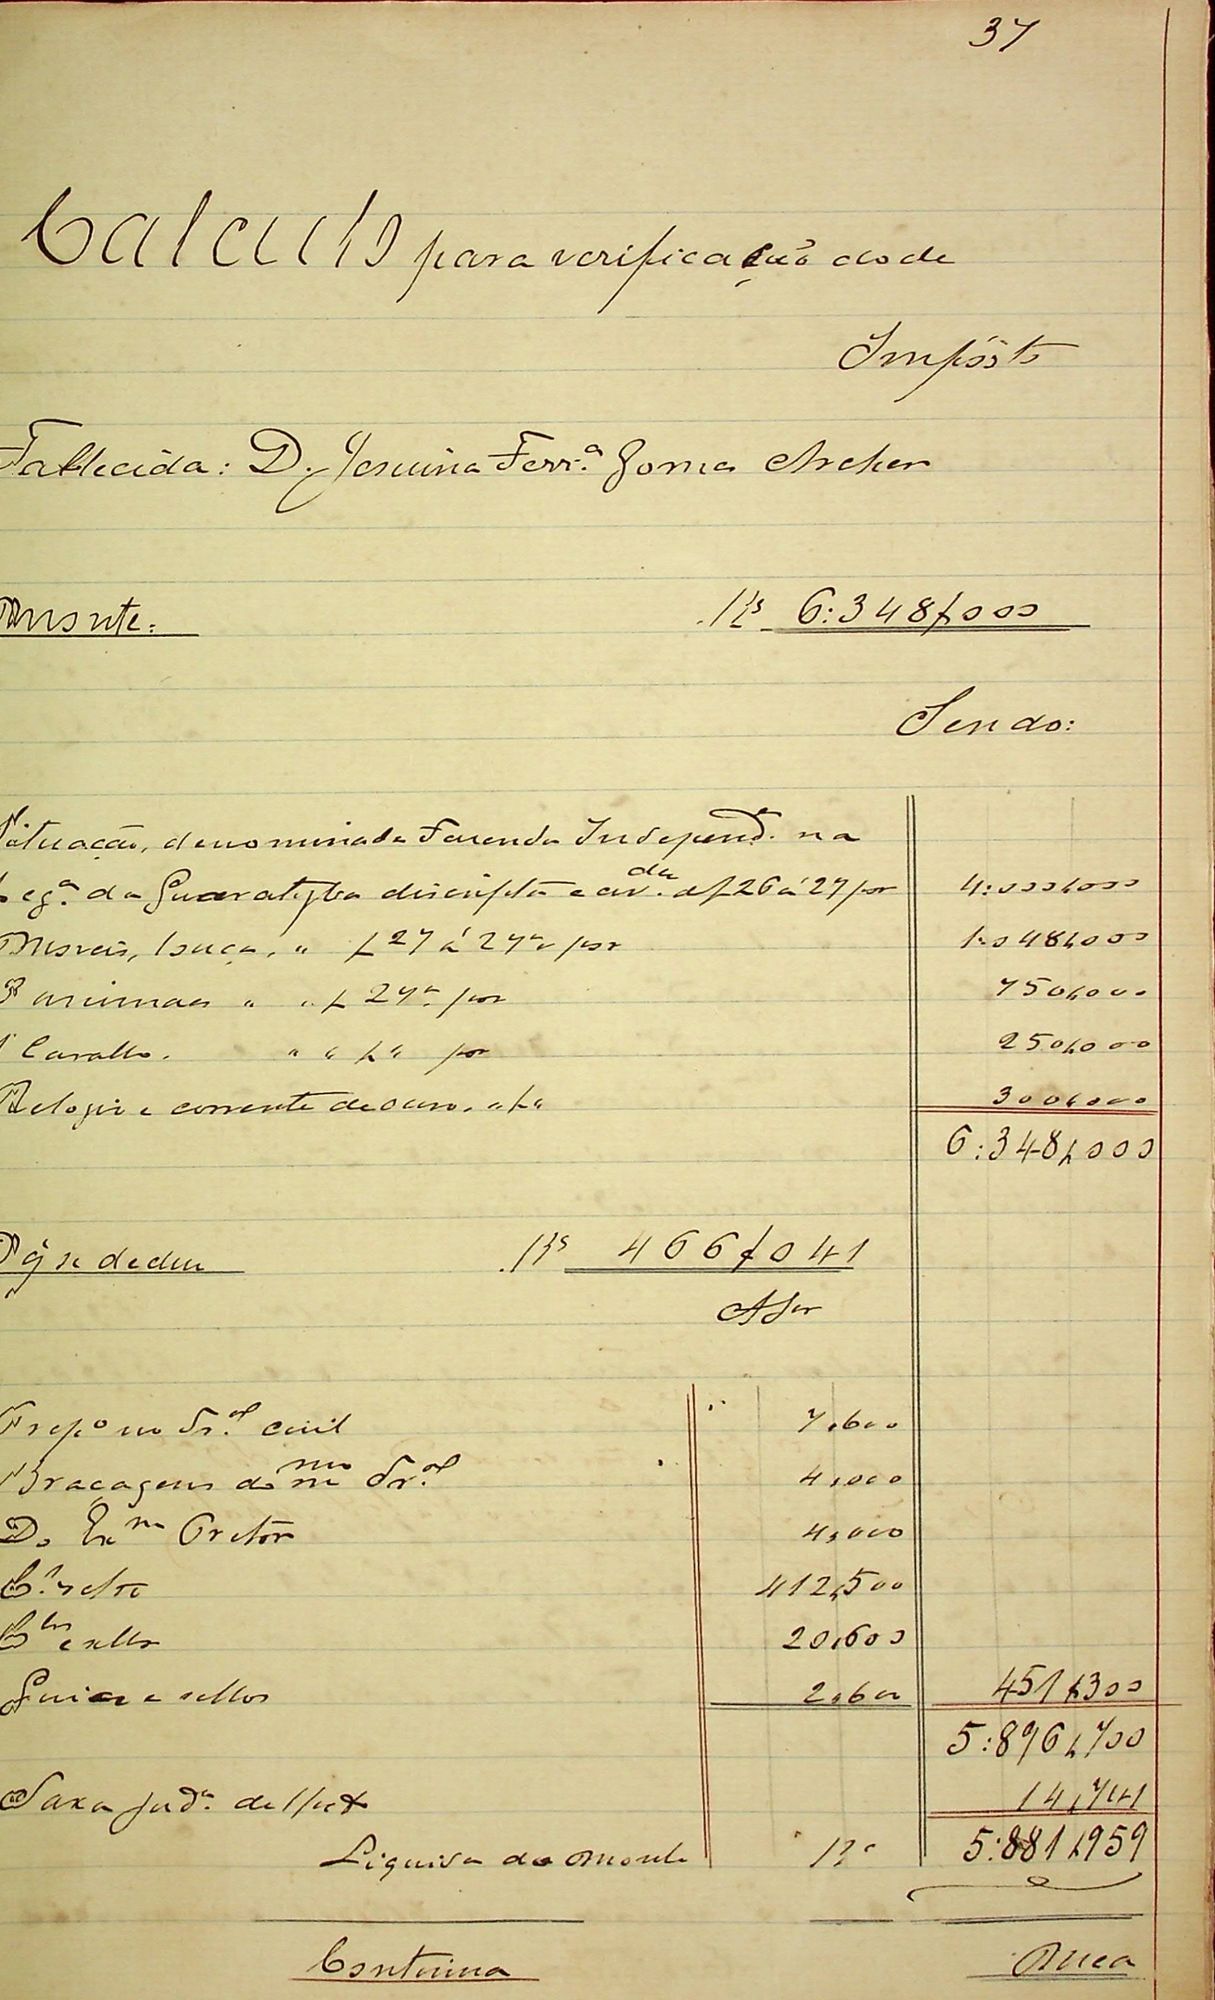 37
Calculo para verificação do de
Impôsto
Fallecida: D. Jesuina Ferrª Gomes Archer
Monte: Rs 6:348$000
Sendo:
Situação, denominada Fazenda Independ.e na
Feg.ª da Guaratyba discripta e av.da af 26 á 27 por 4:000$000
Moveis, louça, " f 27 á 27v por 1:048$000
" " f 27v por 750$000
1 Cavallo. " " f " por 250$000
Relogio e corrente de ouro. " f " 300$000
6:348$000
Do q̃ se dedus Rs 466$041
A Ser
Prep.º no Tr.al Civil 7,600
Braçagens do mmo Tr.al 4,000
Do Exmo Pretor 4,000
412,500
C.tas e sello 20,600
Guias e sellos 2,600 451$300
5:896$700
Taxa jud.ª de 14,741
Liquido do Monte Rs 5:881$959
Continúa